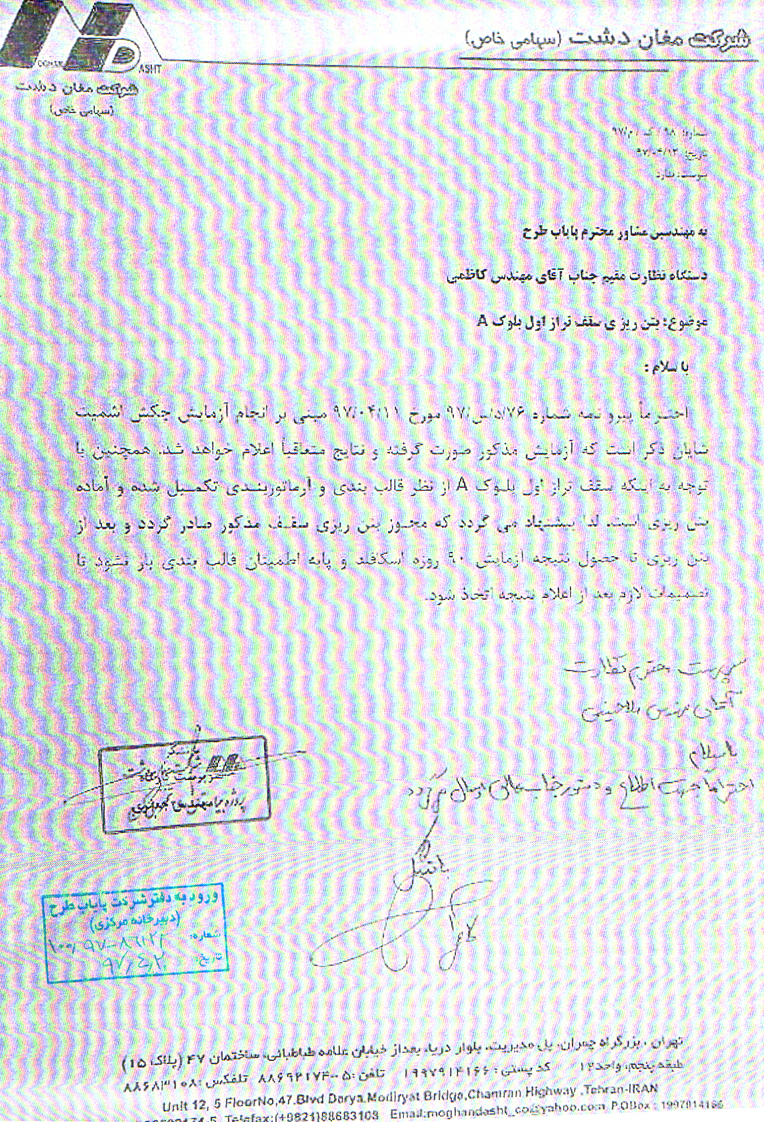 شرکت مغان دشت (سهامی خاص)
ASHT
شرکت مغان دشت
(سهامی خاص)
تاریخ: ۹۷/۰۴/۱۲
پیوست: ندارد
به مهندسین مشاور محترم پایاب طرح
دستگاه نظارت مقیم جناب آقای مهندس کاظمی
موضوع: بتن ریزی سقف تراز اول بلوک A
با سلام :
احتراماً پیرو نامه شماره ۹۷/س/د/۷۶ مورخ ۹۷/۰۴/۱۱ مبنی بر انجام آزمایش چکش اشمیت
شایان ذکر است که آزمایش مذکور صورت گرفته و نتایج متعاقباً اعلام خواهد شد. همچنین با
توجه به اینکه سقف تراز اول بلوک A از نظر قالب بندی و آرماتوربندی تکمیل شده و آماده
بتن ریزی است. لذا پیشنهاد می گردد که مجوز بتن ریزی سقف مذکور صادر گردد و بعد از
بتن ریزی تا حصول نتیجه آزمایش ۹۰ روزه اسکافلد و پایه اطمینان قالب بندی باز نشود تا
تصمیمات لازم بعد از اعلام نتیجه اتخاذ شود.
سرپرست محترم نظارت
آقای مهندس
باسلام
احتراما جهت اطلاع و دستور جنابعالی ارسال می گردد
باتشکر
ورود به دفتر شرکت پایاب طرح
(دبیرخانه مرکزی)
شماره:
تاریخ:
تهران ، بزرگراه چمران، پل مدیریت، بلوار دریا، بعداز خیابان علامه طباطبائی، ساختمان ۴۷ (پلاک ۱۵)
طبقه پنجم، واحد۱۲ کد پستی : ۱۹۹۷۹۱۴۱۶۶ تلفن :۵-۸۸۶۹۲۱۷۴ تلفکس :۸۸۶۸۳۱۰۸
Unit 12, 5 FloorNo,47.Blvd Darya,Modiryat Bridge,Chamran Highway ,Tehran-IRAN
Telefax:(+9821)88683108 Email:moghandasht_co@yahoo.com P.OBox : 1997914166